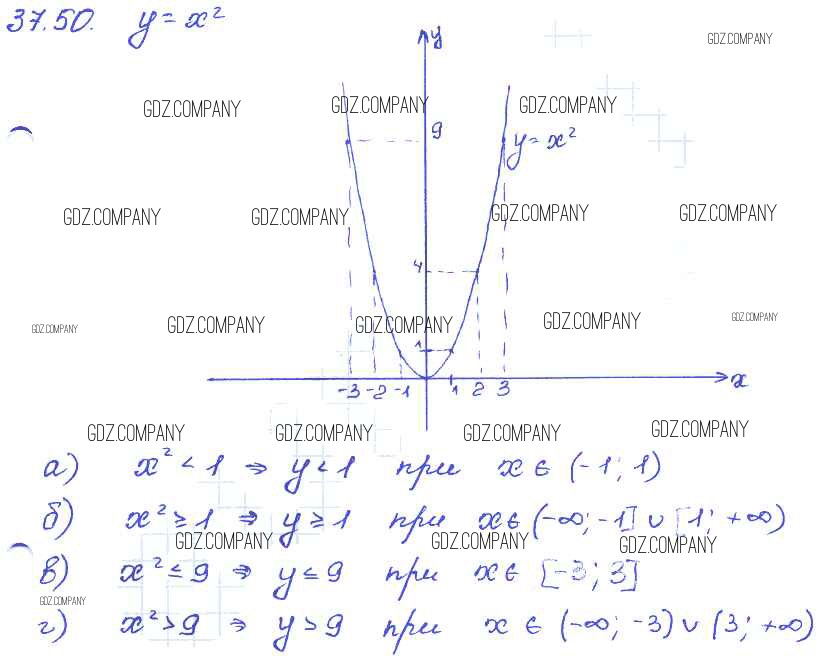 37.50. y = x²
GDZ.COMPANY
y
GDZ.COMPANY GDZ.COMPANY GDZ.COMPANY
9 y = x²
GDZ.COMPANY GDZ.COMPANY GDZ.COMPANY GDZ.COMPANY
4
GDZ.COMPANY GDZ.COMPANY GDZ.COMPANY GDZ.COMPANY GDZ.COMPANY
1
-3 -2 -1 1 2 3 x
GDZ.COMPANY GDZ.COMPANY GDZ.COMPANY GDZ.COMPANY
а) x² < 1 ⇒ y < 1 при x ∈ (-1; 1)
б) x² ≥ 1 ⇒ y ≥ 1 при x ∈ (-∞; -1] ∪ [1; +∞)
GDZ.COMPANY GDZ.COMPANY GDZ.COMPANY
в) x² ≤ 9 ⇒ y ≤ 9 при x ∈ [-3; 3]
GDZ.COMPANY
г) x² > 9 ⇒ y > 9 при x ∈ (-∞; -3) ∪ (3; +∞)